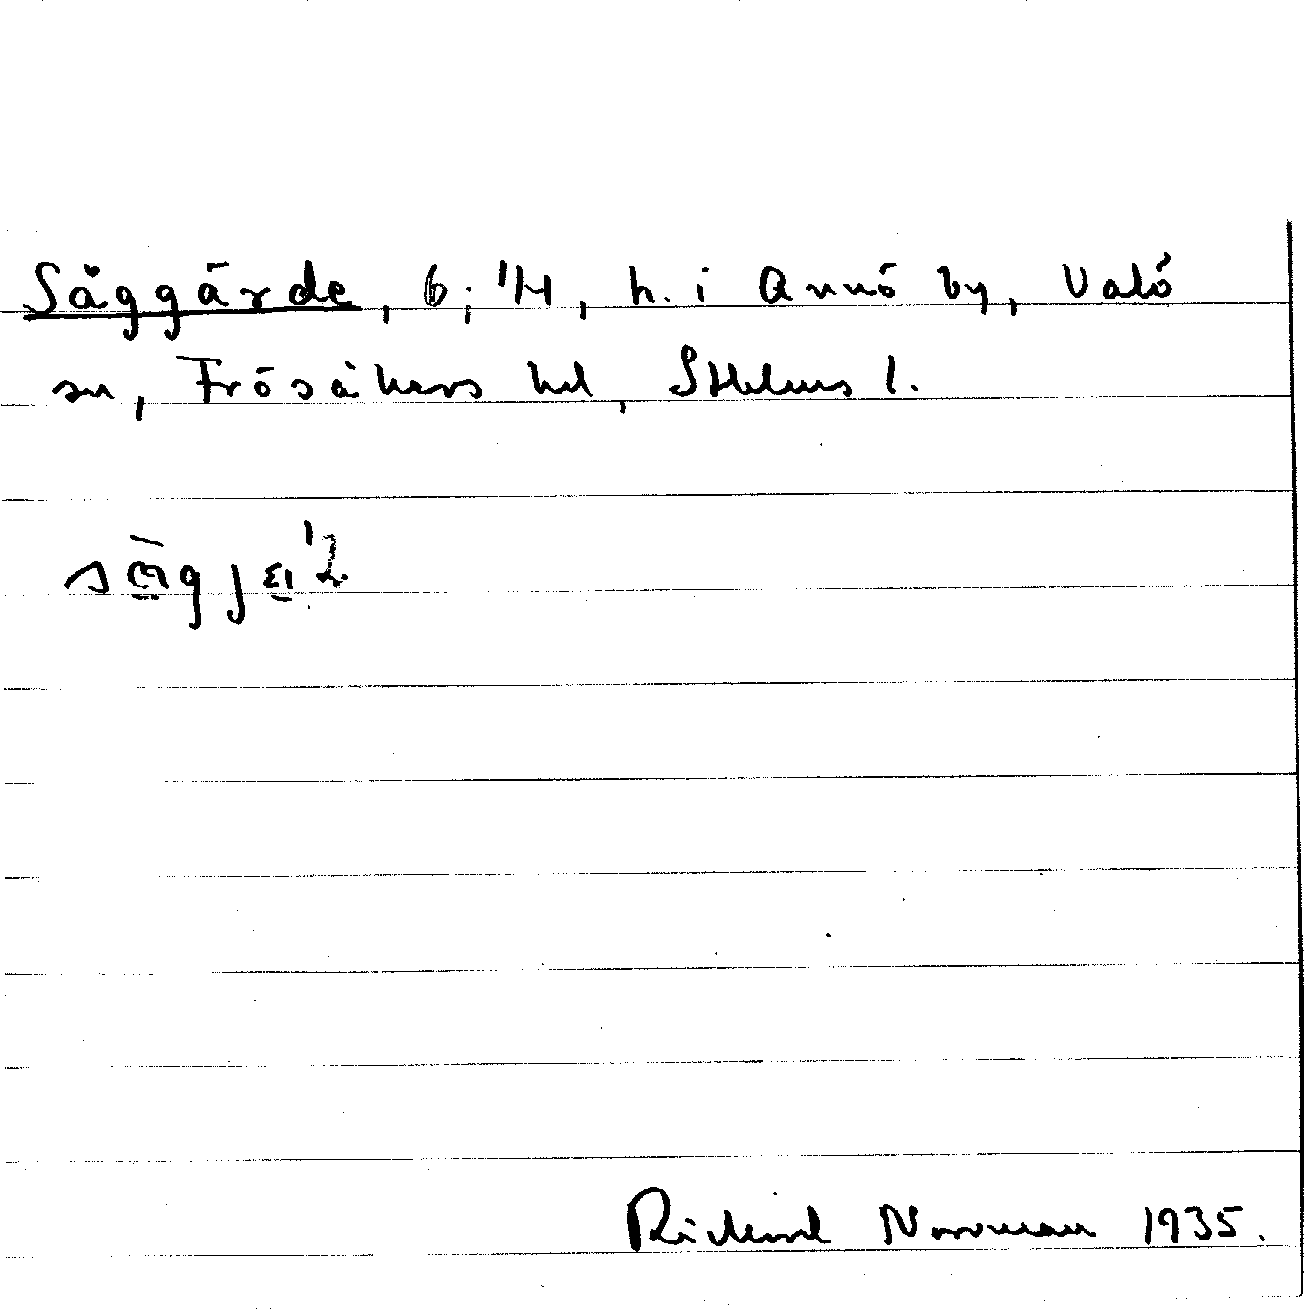 Såggärde, 6; 1/4, h. i Annö by, Valö
sn, Frösåkers hd, Sthlms l.
Rickard Norrman 1935.